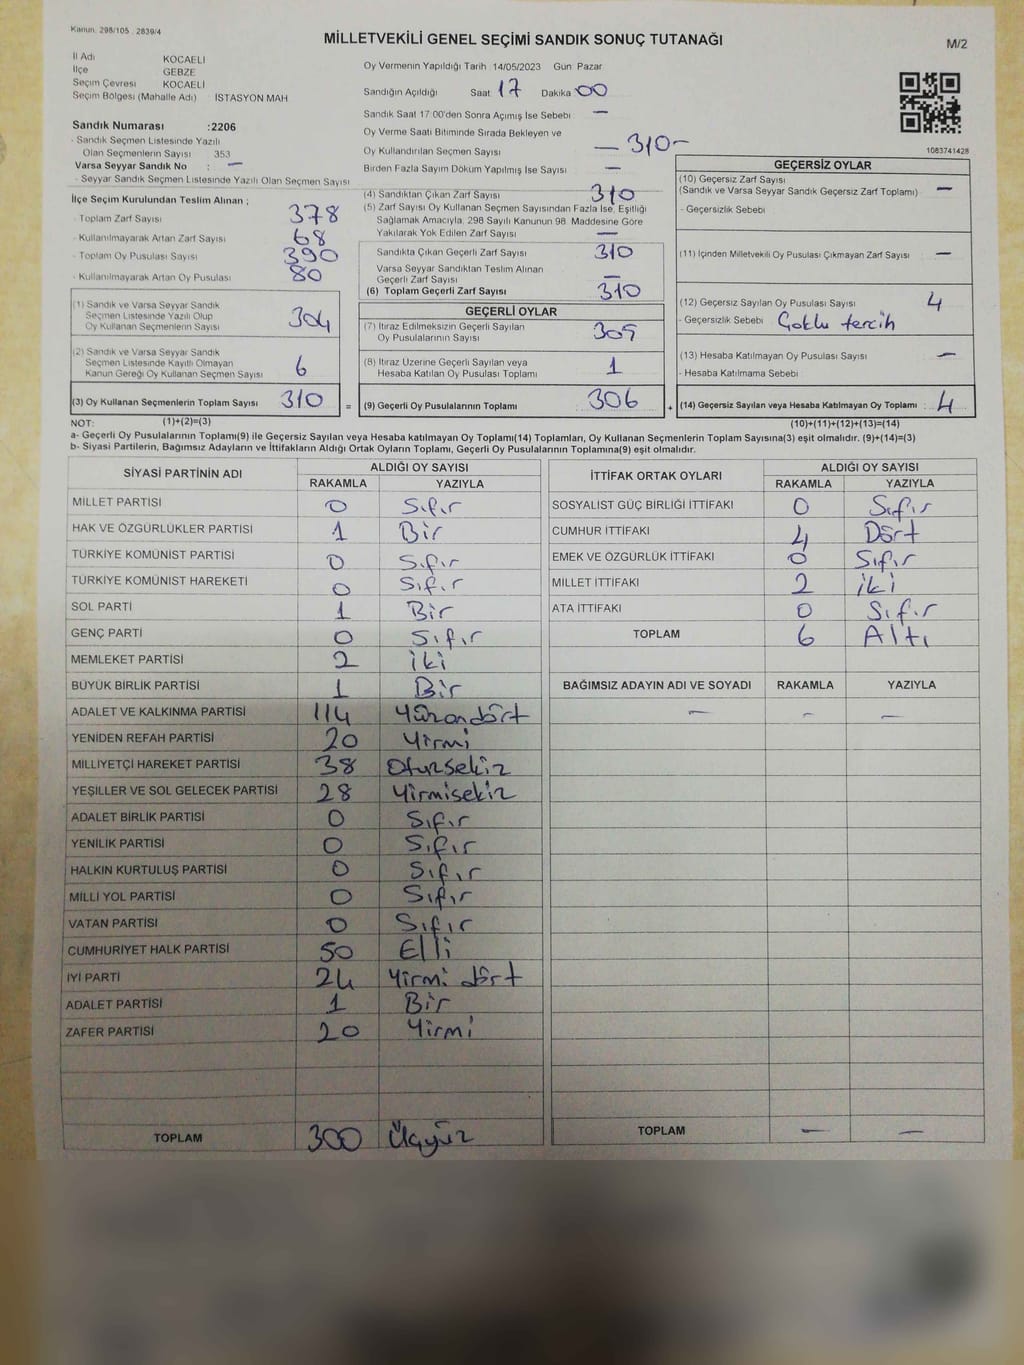 Kanun 298/105 . 2839/4
MİLLETVEKİLİ GENEL SEÇİMİ SANDIK SONUÇ TUTANAĞI
M/2
İl Adı KOCAELİ
İlçe GEBZE
Seçim Çevresi KOCAELİ
Seçim Bölgesi (Mahalle Adı) İSTASYON MAH
Sandık Numarası :2206
- Sandık Seçmen Listesinde Yazılı
Olan Seçmenlerin Sayısı 353
Varsa Seyyar Sandık No : —
- Seyyar Sandık Seçmen Listesinde Yazılı Olan Seçmen Sayısı
Oy Vermenin Yapıldığı Tarih 14/05/2023 Gün Pazar
Sandığın Açıldığı Saat 17 Dakika 00
Sandık Saat 17:00'den Sonra Açımış İse Sebebi —
Oy Verme Saati Bitiminde Sırada Bekleyen ve
Oy Kullandırılan Seçmen Sayısı — 310 —
Birden Fazla Sayım Döküm Yapılmış İse Sayısı —
1083741428
İlçe Seçim Kurulundan Teslim Alınan ;
- Toplam Zarf Sayısı 378
- Kullanılmayarak Artan Zarf Sayısı 68
- Toplam Oy Pusulası Sayısı 390
- Kullanılmayarak Artan Oy Pusulası 80
(1) Sandık ve Varsa Seyyar Sandık
Seçmen Listesinde Yazılı Olup
Oy Kullanan Seçmenlerin Sayısı 304
(2) Sandık ve Varsa Seyyar Sandık
Seçmen Listesinde Kayıtlı Olmayan
Kanun Gereği Oy Kullanan Seçmen Sayısı 6
(3) Oy Kullanan Seçmenlerin Toplam Sayısı 310 =
(1)+(2)=(3)
(4) Sandıktan Çıkan Zarf Sayısı 310
(5) Zarf Sayısı Oy Kullanan Seçmen Sayısından Fazla İse, Eşitliği
Sağlamak Amacıyla, 298 Sayılı Kanunun 98. Maddesine Göre
Yakılarak Yok Edilen Zarf Sayısı —
Sandıkta Çıkan Geçerli Zarf Sayısı 310
Varsa Seyyar Sandıktan Teslim Alınan
Geçerli Zarf Sayısı —
(6) Toplam Geçerli Zarf Sayısı 310
GEÇERLİ OYLAR
(7) İtiraz Edilmeksizin Geçerli Sayılan
Oy Pusulalarının Sayısı 305
(8) İtiraz Üzerine Geçerli Sayılan veya
Hesaba Katılan Oy Pusulası Toplamı 1
(9) Geçerli Oy Pusulalarının Toplamı 306 +
GEÇERSİZ OYLAR
(10) Geçersiz Zarf Sayısı
(Sandık ve Varsa Seyyar Sandık Geçersiz Zarf Toplamı) —
- Geçersizlik Sebebi
(11) İçinden Milletvekili Oy Pusulası Çıkmayan Zarf Sayısı —
(12) Geçersiz Sayılan Oy Pusulası Sayısı 4
- Geçersizlik Sebebi Çoklu tercih
(13) Hesaba Katılmayan Oy Pusulası Sayısı —
- Hesaba Katılmama Sebebi
(14) Geçersiz Sayılan veya Hesaba Katılmayan Oy Toplamı : 4
(10)+(11)+(12)+(13)=(14)
NOT:
a- Geçerli Oy Pusulalarının Toplamı(9) ile Geçersiz Sayılan veya Hesaba katılmayan Oy Toplamı(14) Toplamları, Oy Kullanan Seçmenlerin Toplam Sayısına(3) eşit olmalıdır. (9)+(14)=(3)
b- Siyasi Partilerin, Bağımsız Adayların ve İttifakların Aldığı Ortak Oyların Toplamı, Geçerli Oy Pusulalarının Toplamına(9) eşit olmalıdır.
SİYASİ PARTİNİN ADI ALDIĞI OY SAYISI
RAKAMLA YAZIYLA
MİLLET PARTİSİ 0 Sıfır
HAK VE ÖZGÜRLÜKLER PARTİSİ 1 Bir
TÜRKİYE KOMÜNİST PARTİSİ 0 Sıfır
TÜRKİYE KOMÜNİST HAREKETİ 0 Sıfır
SOL PARTİ 1 Bir
GENÇ PARTİ 0 Sıfır
MEMLEKET PARTİSİ 2 iki
BÜYÜK BİRLİK PARTİSİ 1 Bir
ADALET VE KALKINMA PARTİSİ 114 Yüzondört
YENİDEN REFAH PARTİSİ 20 Yirmi
MİLLİYETÇİ HAREKET PARTİSİ 38 Otuzsekiz
YEŞİLLER VE SOL GELECEK PARTİSİ 28 Yirmisekiz
ADALET BİRLİK PARTİSİ 0 Sıfır
YENİLİK PARTİSİ 0 Sıfır
HALKIN KURTULUŞ PARTİSİ 0 Sıfır
MİLLİ YOL PARTİSİ 0 Sıfır
VATAN PARTİSİ 0 Sıfır
CUMHURİYET HALK PARTİSİ 50 Elli
İYİ PARTİ 24 Yirmi dört
ADALET PARTİSİ 1 Bir
ZAFER PARTİSİ 20 Yirmi
TOPLAM 300 Üçyüz
İTTİFAK ORTAK OYLARI ALDIĞI OY SAYISI
RAKAMLA YAZIYLA
SOSYALİST GÜÇ BİRLİĞİ İTTİFAKI 0 Sıfır
CUMHUR İTTİFAKI 4 Dört
EMEK VE ÖZGÜRLÜK İTTİFAKI 0 Sıfır
MİLLET İTTİFAKI 2 iki
ATA İTTİFAKI 0 Sıfır
TOPLAM 6 Altı
BAĞIMSIZ ADAYIN ADI VE SOYADI RAKAMLA YAZIYLA
— — —
TOPLAM — —